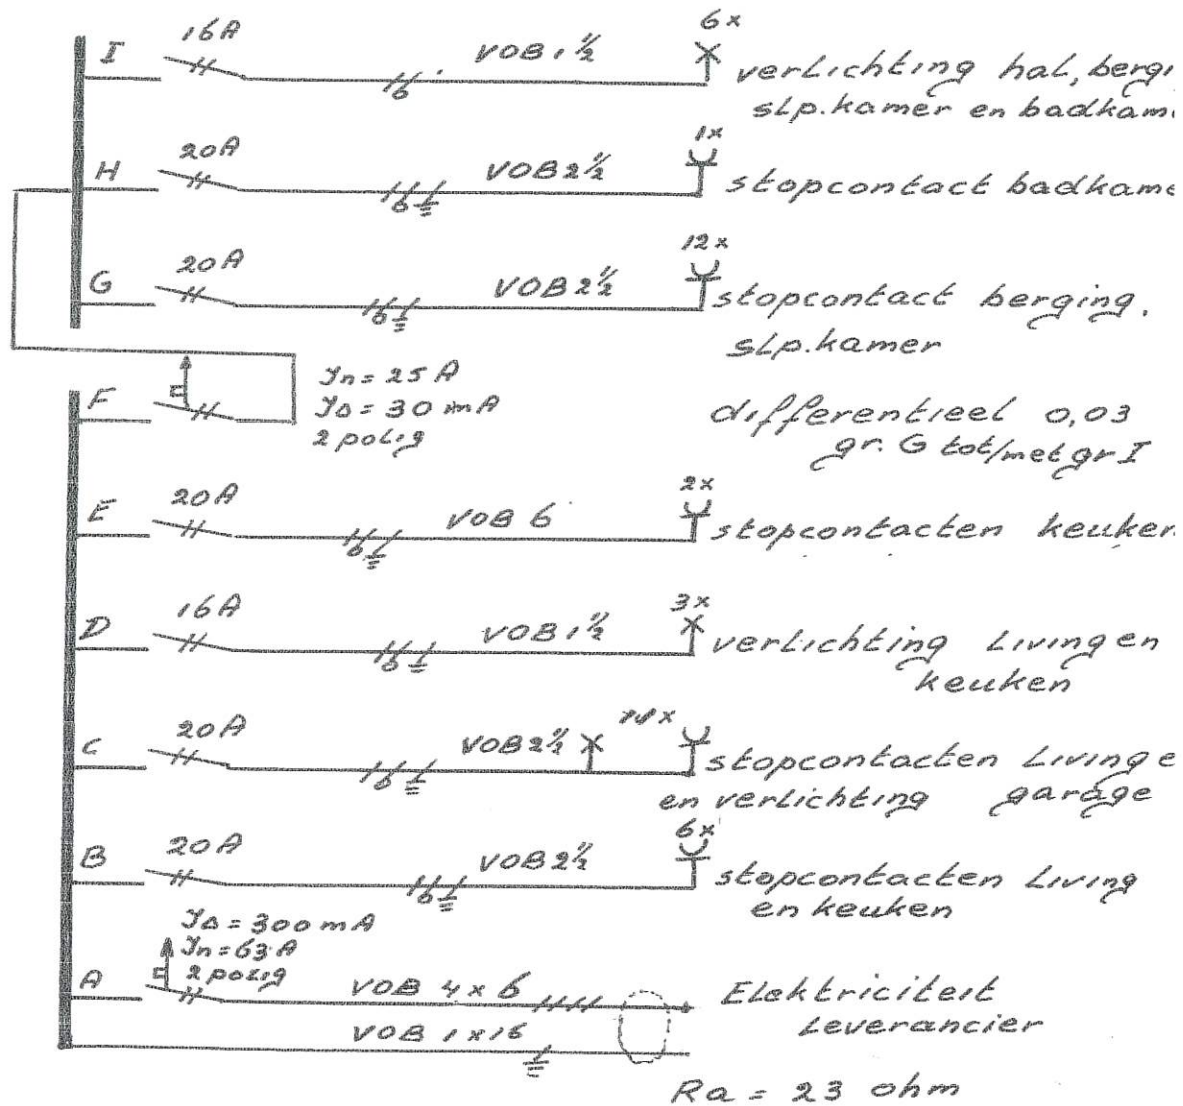 6x
I 16A VOB 1½
verlichting hal, bergi
slp.kamer en badkam
1x
H 20A VOB 2½
stopcontact badkame
12x
G 20A VOB 2½
stopcontact berging.
slp.kamer
F In = 25 A
IΔ = 30 mA
2 polig
differentieel 0,03
gr. G tot/met gr I
2x
E 20A VOB 6
stopcontacten keuken
3x
D 16A VOB 1½
verlichting living en
keuken
C 20A VOB 2½
stopcontacten living e
en verlichting garage
6x
B 20A VOB 2½
stopcontacten living
en keuken
IΔ = 300 mA
In = 63 A
2 polig
A VOB 4 x 6
Elektriciteit
Leverancier
VOB 1 x 16
Ra = 23 ohm